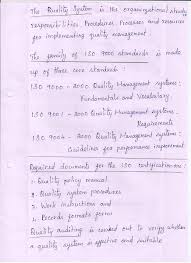 The Quality System is the organizational study
responsibilities, Procedures, Processes and resources
for implementing quality management.
The family of ISO 9000 standards is made
up of three core standards :
ISO 9000 - 2000 Quality Management systems:
Fundamentals and Vocabulary
ISO 9001 - 2000 Quality Management systems:
Requirements
ISO 9004 - 2000 Quality Management systems:
Guidelines for performance improvement
Required documents for the ISO certification are:
1. Quality policy manual
2. Quality system procedures
3. Work instructions and
4. Records formats forms
Quality auditing is carried out to verify whether
a quality system is effective and suitable